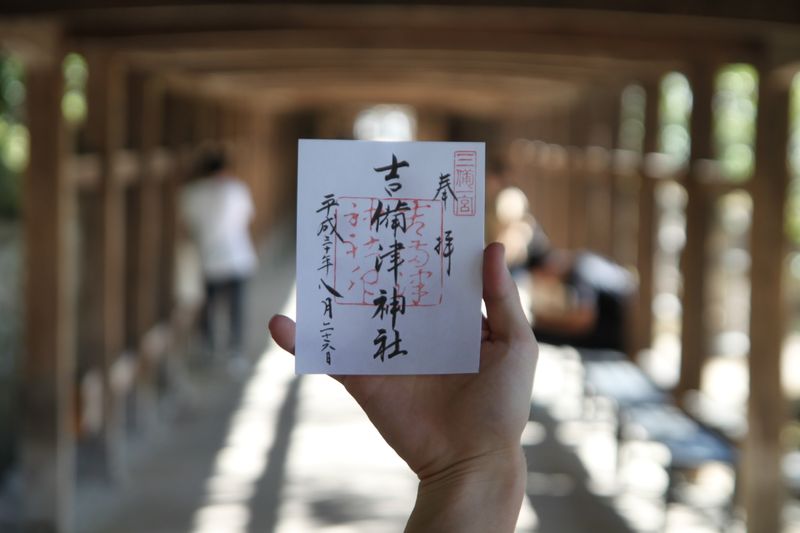 三備一宮
奉拝
吉備津神社
平成三十年八月二十六日